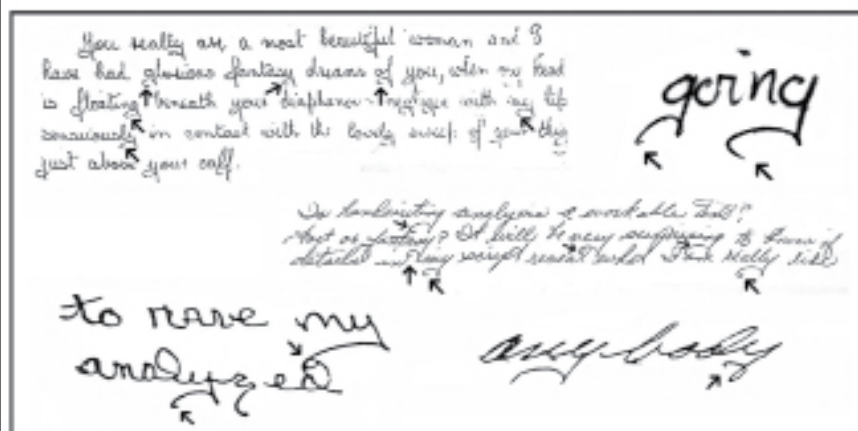 You really are a most beautiful woman and I
have had glorious fantasy dreams of you, when my head
is floating beneath your diaphanous negligee with my lip
sensuously in contact with the lovely sweep of your thigh
just above your calf.
going
Is handwriting analysis a workable tool?
Fact or fantasy? It will be very surprising to know if
details in my script reveal what I am really like
to have my
analyzed
any body